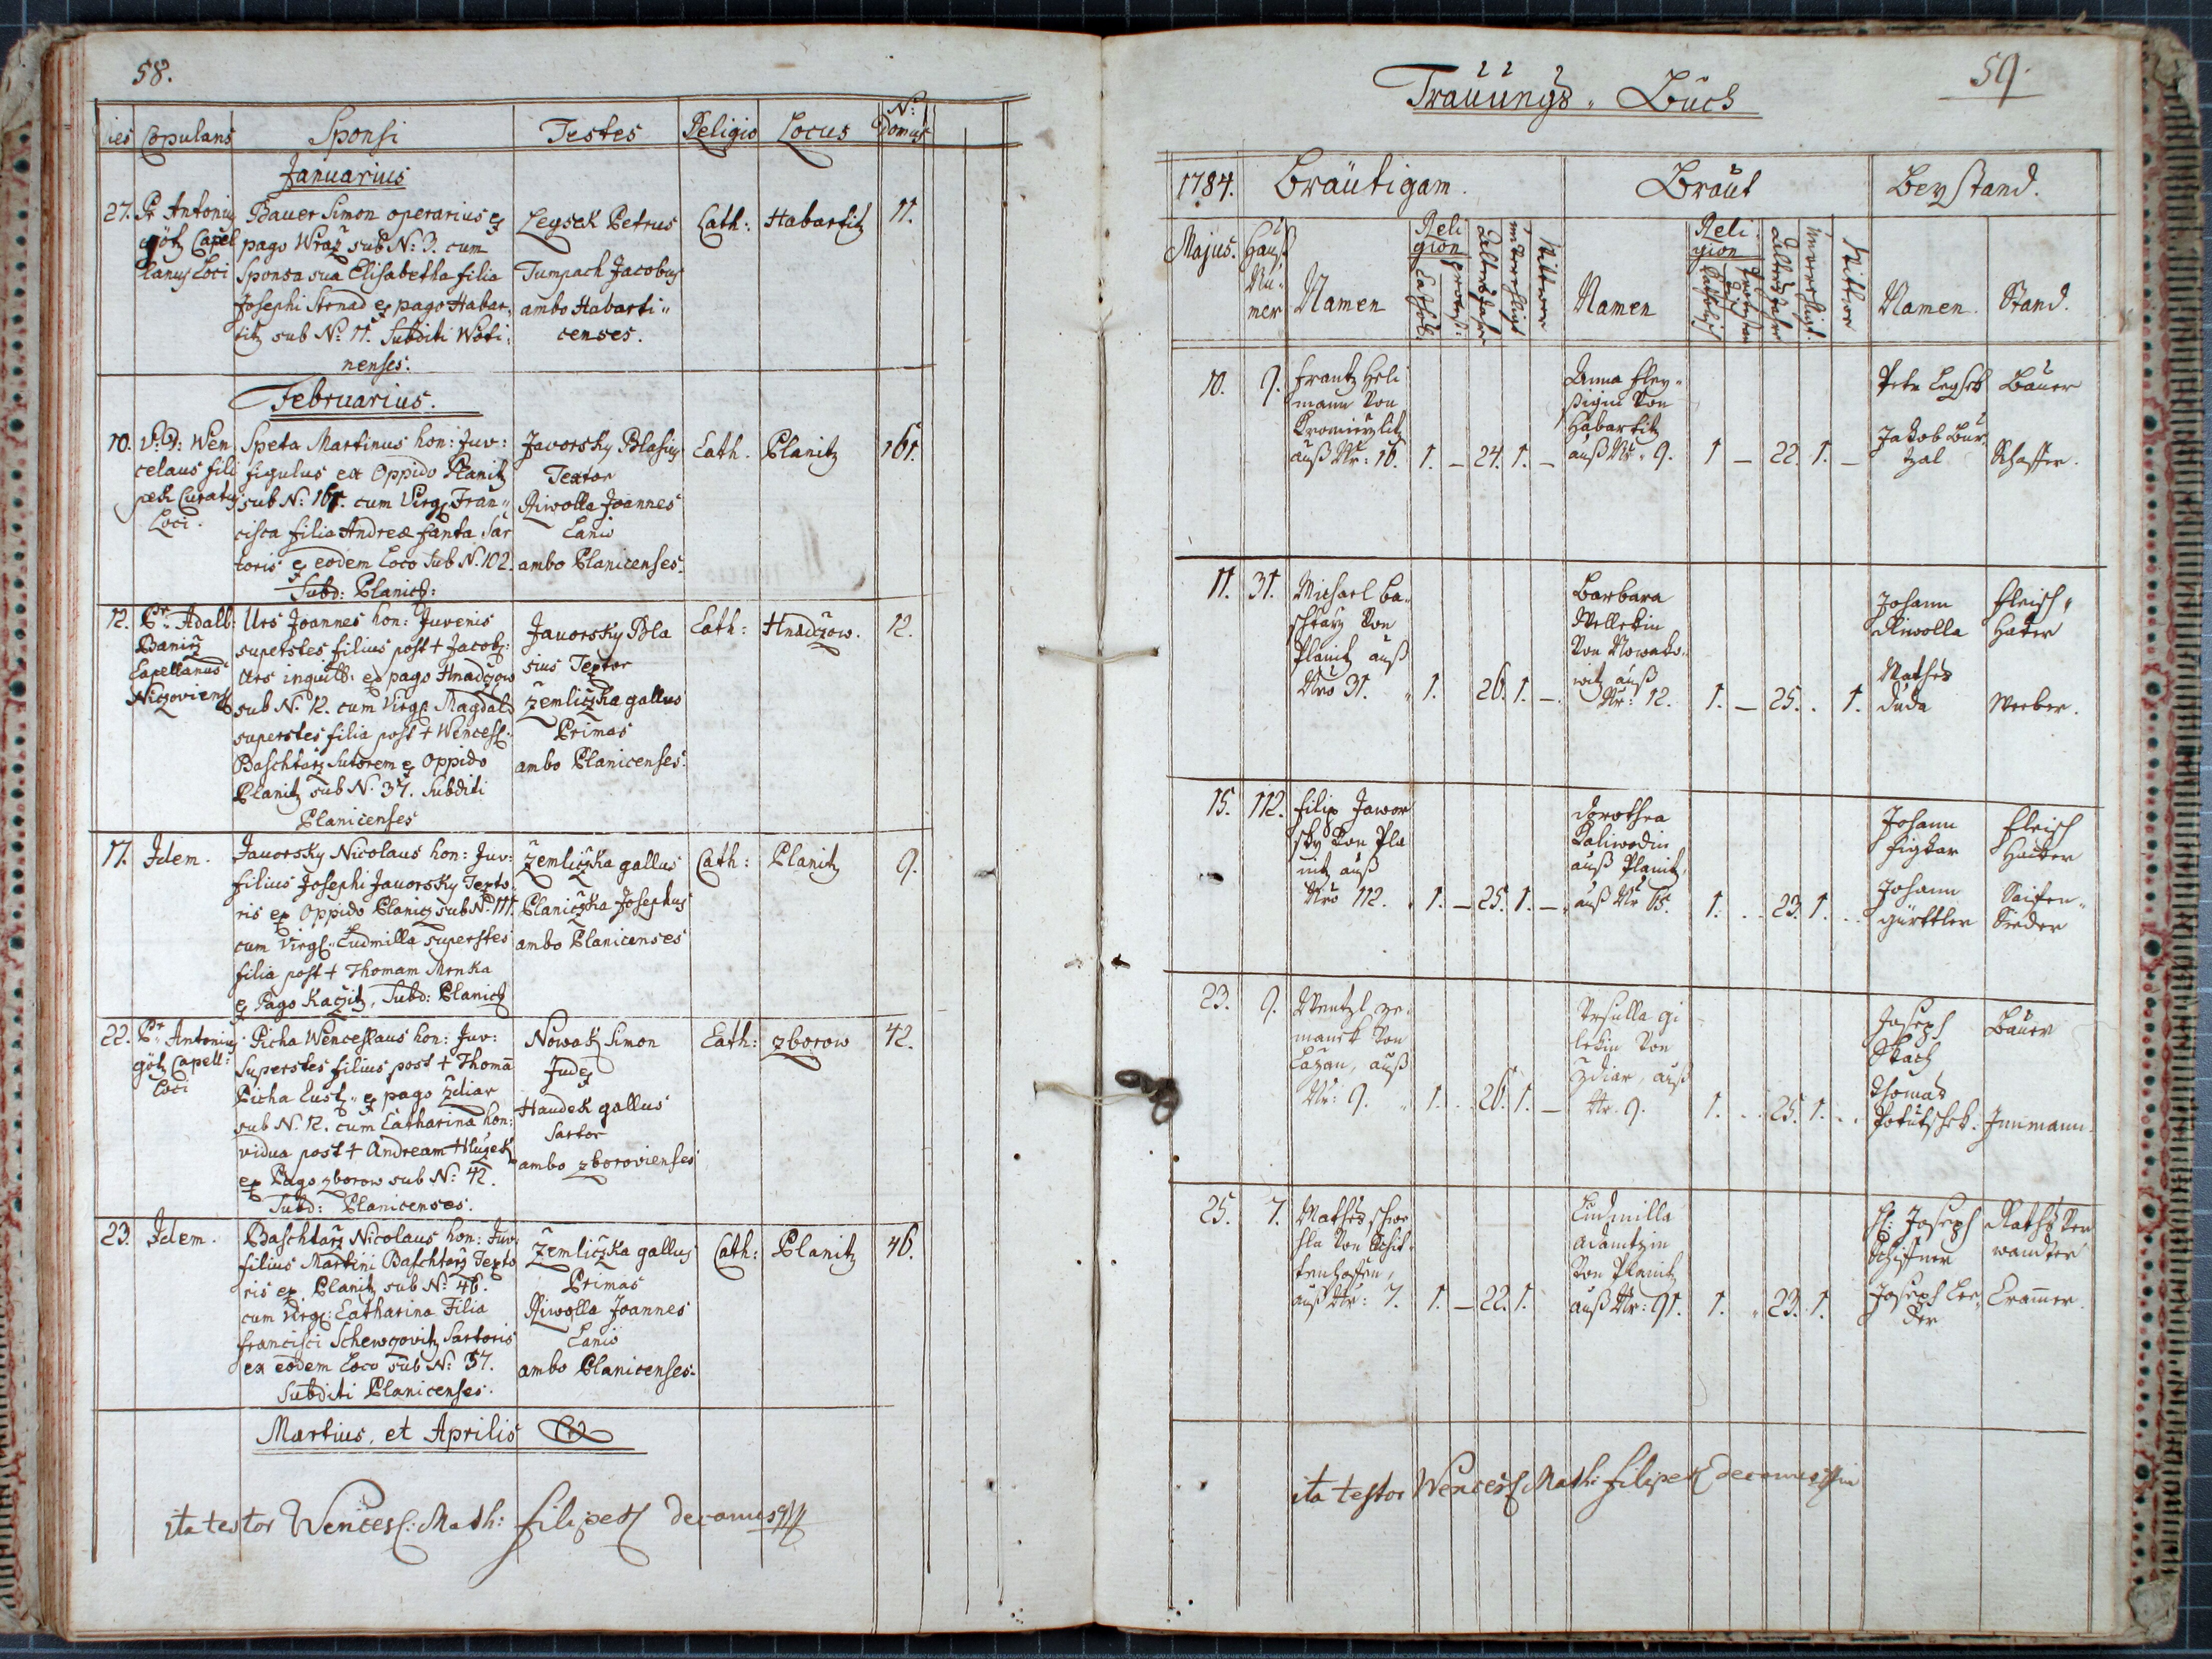 58.
ies Copulans Sponsi Testes Religio Locus N: Domus
Januarius
27. Pr Antoniq
götz Capel
lanus Loci
Bauer Simon operarius ex
pago Wraž sub N: 3. cum
Sponsa sua Elisabetha filia
Josephi Strnad ex pago Habar,
titz sub No 11. Subditi
nenses.
Legsek Petrus
Tumpach Jacobus
ambo Habarti"
censes.
Cath: Habartitz 11.
Februarius.
10. V: D: Wen
celaus fili
pek Curatus
Loci.
Speta Martinus hon: Juv:
figulus ex Oppido Planitz
sub N: 161. cum Virg: Fran"
cisca filia Andreæ fanta Sar
toris ex eodem Loco Sub N. 102.
Subd: Planic:
Javorsky Blasius
Textor
Riwolla Joannes
Lanio
ambo Planicenses.
Cath. Planitz 161.
12. Pr. Adalb:
Capellanus
Niczoviens
Urs Joannes hon: Juvenis
superstes filius post + Jacob:
Urs inquilb: ex pago Hnadczow
sub N. 12. cum Virg: Magdal:
superstes filia post + Wencesl:
Baschtarz Sutorem ex Oppido
Planitz sub N. 37. Subditi
Planicenses
Javorsky Bla
sius Textor
Zemliczka gallus
Primas
ambo Planicenses:
Cath: Hnadczow. 12.
17. Idem.
Javorsky Nicolaus hon: Juv:
filius Josephi Javorsky Texto
ris ex Oppido Planicz sub No 111.
cum Virg: Ludmilla superstes
filia post + Thomam Mrnka
ex Pago Kaczitz, Subd: Planic
Zemliczka gallus
Planiczka Josephus
ambo Planicenses
Cath: Planitz 9.
22. Pr Antoniq
götz Capell:
Loci
Picha Wenceslaus hon: Juv:
Superstes filius post + Thoma
Picha Cust: ex pago Zdiar
sub N. 12. cum Catharina hon:
vidua post + Andream Hluzek
ex Pago zborow sub N: 42.
Subd: Planicenses.
Nowak Simon
Judex
Haudek gallus
Sartor
ambo zborovienses
Cath: zborow 42.
23. Idem.
Baschtarz Nicolaus hon: Juv:
filius Martini Baschtarz Texto
ris ex Planitz sub N: 46.
cum Virg: Catharina Filia
francisci Schewczovitz Sartoris
ex eodem Loco sub N: 57.
Subditi Planicenses.
Zemliczka gallus
Primas
Riwolla Joannes
Lanio
ambo Planicenses.
Cath: Planitz 46.
Martius, et Aprilis
ita testor Wencesl: Math: filipek decanus
59.
Trauungs" Buch
1784. Bräutigam. Braut Beystand.
Majus. Hauß
Nu"
mer
Namen
Reli
gion
Cathol.
protest:
Alters Jahr
unverehligt
Wittwer
Namen
Reli
gion
Catholisch
Protestan
Alters Jahr
unverehligt.
Wittwe
Namen. Stand.
10. 9. Frantz Heli
mann von
auß Nr: 16. 1. – 24. 1. –
Anna fley"
ßigin von
Habartitz
auß Nr. 9. 1 – 22. 1. –
Petr Legsek Bauer
Jakob Bur
zal Schaffer.
11. 31. Michael Ba"
schtarz von
Planitz auß
Nro 31. 1. 26. 1. –
Barbara
Wellekin
von Nowako"
witz auß
Nr: 12. 1. – 25. . 1.
Johann
Riwolla
Fleisch"
haker
Mathes
Duda Weeber.
15. 112. Filip Jawor
sky von Pla
nitz auß
Nro 112. 1. – 25. 1. –
Dorothea
Kaliwodin
auß Planitz,
auß Nr 65. 1. 23. 1.
Johann
Figlar
Fleisch
haker
Johann
gürttler
Saifen"
Sieder
23. 9. Wentzl ze
manek von
Lazan, auß
Nr: 9. 1. 26. 1. –
Ursulla gi
lekin von
Zdiar, auß
Nr. 9. 1. 25. 1.
Joseph
Stach
Bauer
Thomas
Potutschek. Innmann.
25. 7. Mathes schwe
hla von Schit"
tenhoffen,
auß Nr: 7. 1. – 22. 1.
Ludmilla
Adamtzin
von Planitz
auß Nr: 91. 1. 23. 1.
H: Joseph
Schiffner
Raths ver
wandter
Joseph Lee,
der Cramer.
ita testor Wencesl: Math: filipek decanus